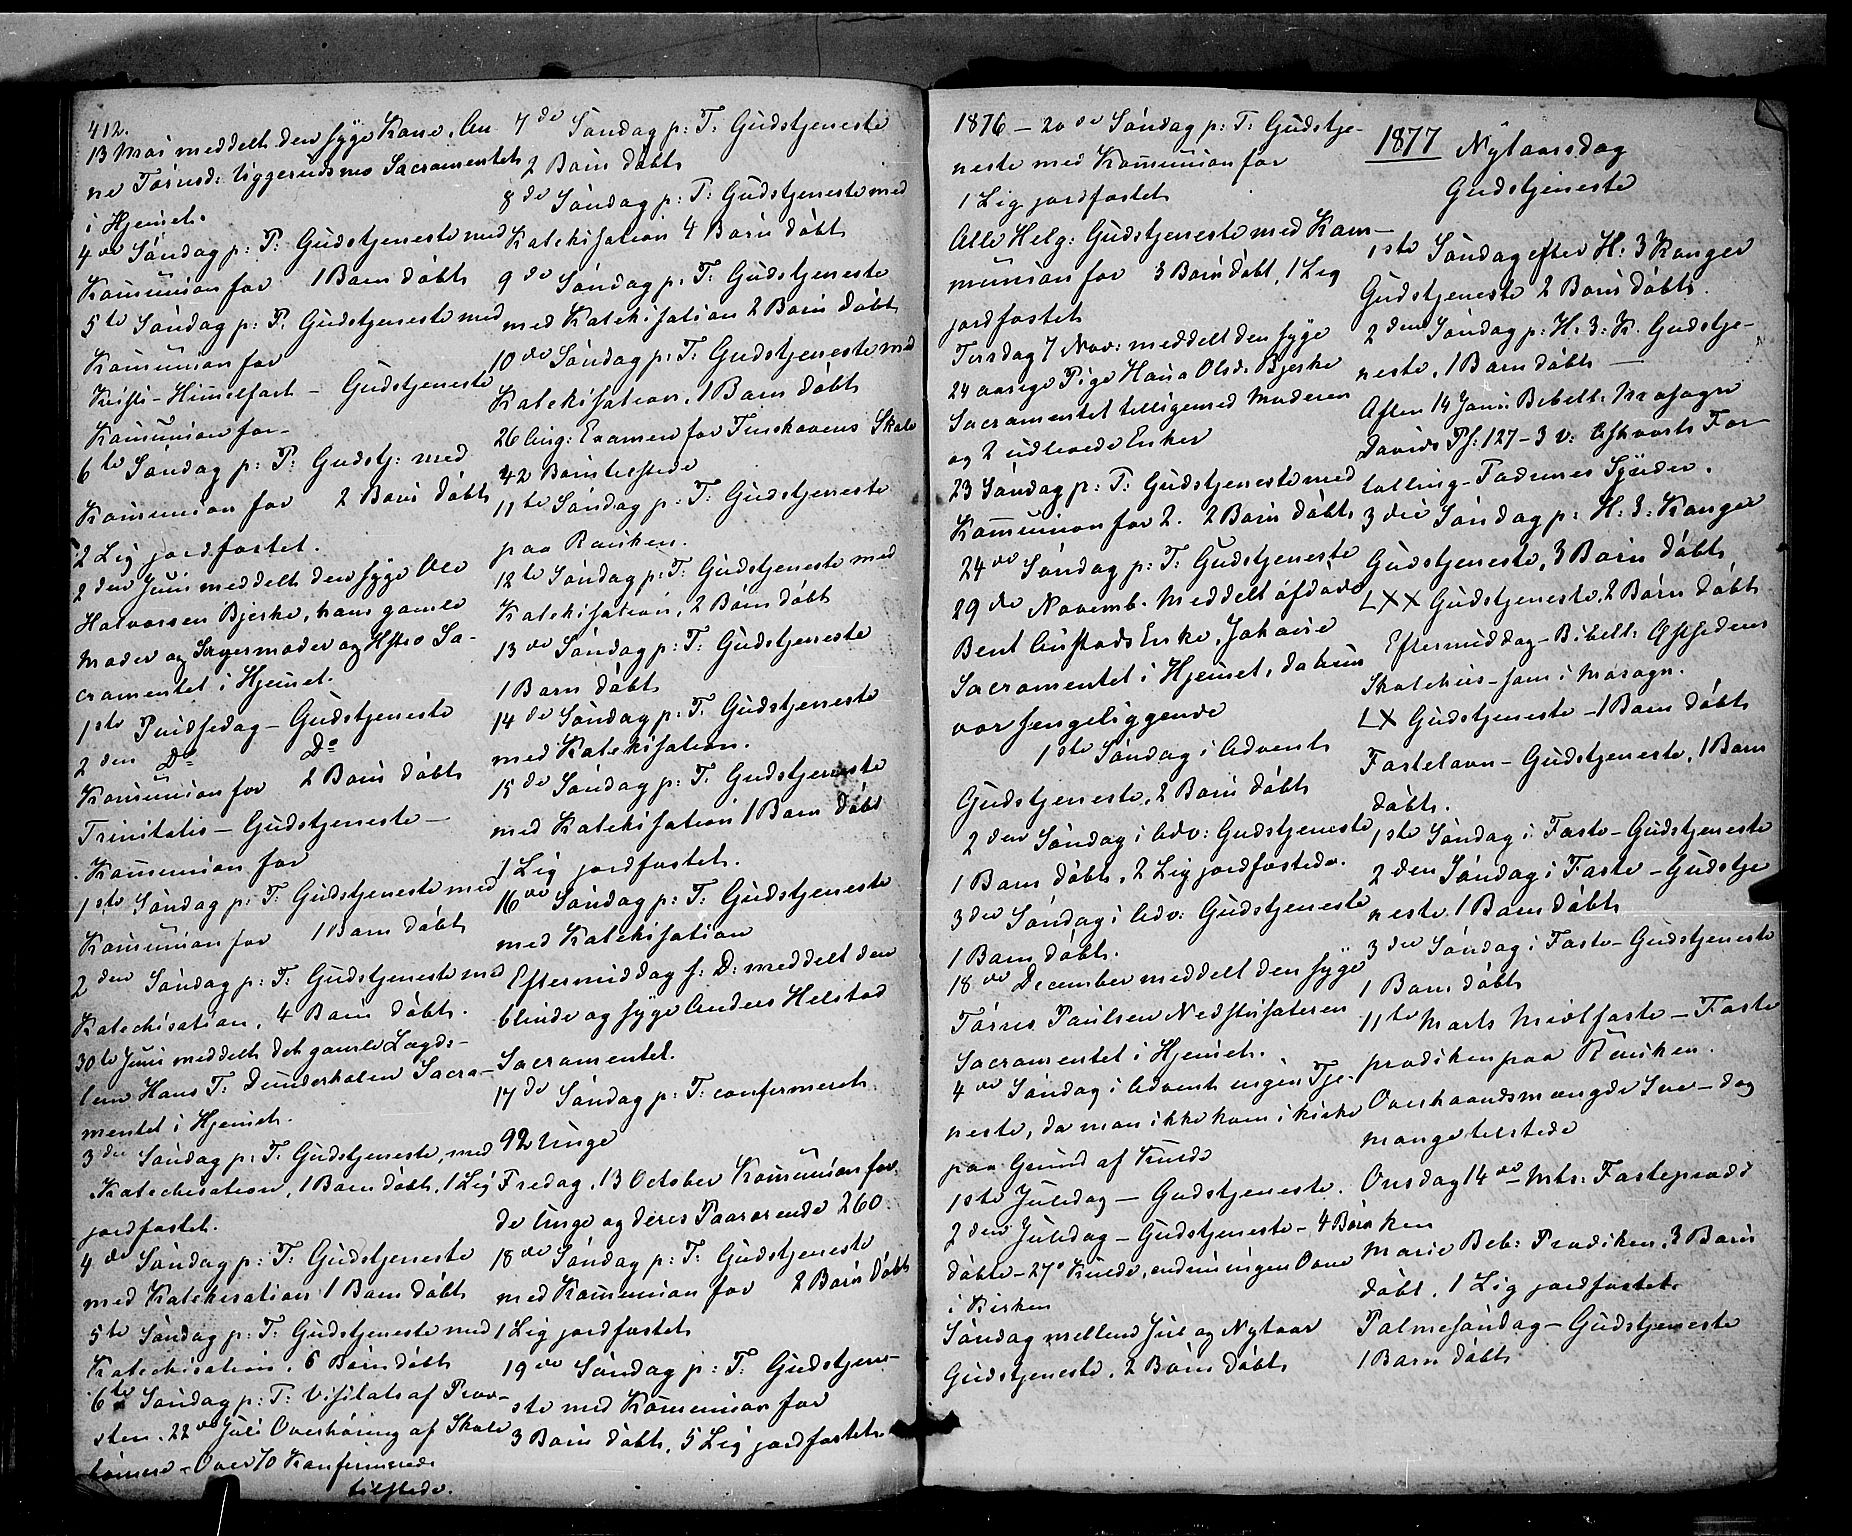 412.
13 Mai meddelt den syge Kone, An
ne Tørresd: Uggerudsmo Sacramentet
i Hjemet.
4de Søndag p: P: Gudstjeneste med
Kommunion for 1 Barn døbt
5te Søndag p: P. Gudstjeneste med
Kommunion for
Kristi-Himelfart - Gudstjeneste
Kommunion for
6te Søndag p: P: Gudstj: med
Kommunion for 2 Børn døbt
2 Lig jordfæstet.
2den Juni meddelt den syge Ole
Halvorsen Bjerke, hans gamle
Moder og Svigermoder og Sa-
cramentet i Hjemet.
1ste Pindsedag - Gudstjeneste
2den Do Do
Kommunion for 2 Børn døbt
Trinitatis - Gudstjeneste -
Kommunion for
1ste Søndag p: T: Gudstjeneste med
Kommunion for 1 Barn døbt
2den Søndag p: T: Gudstjeneste med
Katechisation, 4 Børn døbt.
30te Juni meddelt det gamle Lægds-
lem Hans T: Dunderhølen Sacra-
mentet i Hjemet.
3die Søndag p: T: Gudstjeneste, med
Katechisation, 1 Barn døbt, 1 Lig
jordfæstet.
4de Søndag p: T: Gudstjeneste
med Katekisation 1 Barn døbt
5te Søndag p: T: Gudstjeneste med
Katechisation, 6 Børn døbt
6te Søndag p: T: Visitats af Prov-
sten. 22de Juli Overhøring af Skole
børnene - Over 70 Konfirmerede
tilstede.
7de Søndag p: T: Gudstjeneste
2 Børn døbt
8de Søndag p: T: Gudstjeneste med
Katekisation 4 Børn døbt
9de Søndag p: T: Gudstjeneste
med Katekisation 2 Børn døbt
10de Søndag p: T: Gudstjeneste med
Katekisation, 1 Barn døbt
26 Aug: Examen for Finskovens Skole
42 Børn tilstede
11te Søndag p: T: Gudstjeneste
paa
12te Søndag p: T: Gudstjeneste med
Katekisation, 2 Børn døbt
13de Søndag p: T: Gudstjeneste
1 Barn døbt
14de Søndag p: T: Gudstjeneste
med Katekisation.
15de Søndag p: T. Gudstjeneste
med Katekisation 1 Barn døbt
1 Lig jordfæstet.
16de Søndag p: T: Gudstjeneste
med Katekisation
Eftermiddag s: D: meddelt den
blinde og syge Anders Helstad
Sacramentet.
17de Søndag p: T: confirmeret
92 Unge
Fredag, 13 October Kommunion for
de Unge og deres Paarørende 260.
18de Søndag p: T: Gudstjeneste
med Kommunion for 2 Børn døbt
1 Lig jordfæstet
19de Søndag p: T: Gudstjene-
ste med Kommunion for
3 Børn døbt, 5 Lig jordfæstet
1876 - 20de Søndag p: T: Gudstje-
neste med Kommunion for
1 Lig jordfæstet
Alle Helg: Gudstjeneste med Kom-
munion for 3 Børn døbt, 1 Lig
jordfæstet
Tirsdag 7 Nov: meddelt den syge
24 aarige Pige Hana Olsd. Bjerke
Sacramentet tilligemed Moderen
og 2 udlevede Enker
23 Søndag p: T: Gudstjeneste med
Kommunion for 2. 2 Børn døbt
24de Søndag p: T: Gudstjeneste
29de Novemb. Meddelt afdøde
Bent Austads Enke, Johanne
Sacramentet i Hjemet, da hun
var sengeliggende
1ste Søndag i Advent
Gudstjeneste, 2 Børn døbt
2den Søndag i Adv: Gudstjeneste
1 Barn døbt, 2 Lig jordfæstede.
3die Søndag i Adv: Gudstjeneste
1 Barn døbt.
18de December meddelt den syge
Tørres Paulsen
Sacramentet i Hjemet.
4de Søndag i Advent ingen Tje-
neste, da man ikke kom i Kirke
paa Grund af Kulde
1ste Juledag - Gudstjeneste.
2den Juledag - Gudstjeneste - 4 Børn
døbte - 27° Kulde, endnu ingen Ovne
i Kirken
Søndag mellem Jul og Nytaar
Gudstjeneste, 2 Børn døbt
1877 Nytaarsdag
Gudstjeneste
1ste Søndag efter H: 3 Konger
Gudstjeneste 2 Børn døbt.
2den Søndag p: H: 3: K. Gudstje-
neste, 1 Barn døbt -
Aften 14 Janu: Bibell: Mosogn
Davids Ps: 127 - 3 v: Esthvorts For-
tælling - Fædrenes Synder.
3die Søndag p: H: 3: Konger
Gudstjeneste, 3 Børn døbt
LXX Gudstjeneste, 2 Børn døbt
Eftermiddag - Bibell:
Skolehus - som i Mosogn.
LX Gudstjeneste - 1 Barn døbt
Fastelavn - Gudstjeneste, 1 Barn
døbt.
1ste Søndag i Faste - Gudstjeneste
2den Søndag i Faste - Gudstje
neste 1 Barn døbt
3die Søndag i Faste - Gudstjeneste
1 Barn døbt
11te Marts Midfaste - Faste
prædiken paa
Overhaandsmængde Sne - dog
mange tilstede
Onsdag 14de - Mts: Fasteprædi
ken
Marie Beb: Prædiken, 3 Børn
døbt, 1 Lig jordfæstet
Palmesøndag - Gudstjeneste
1 Barn døbt